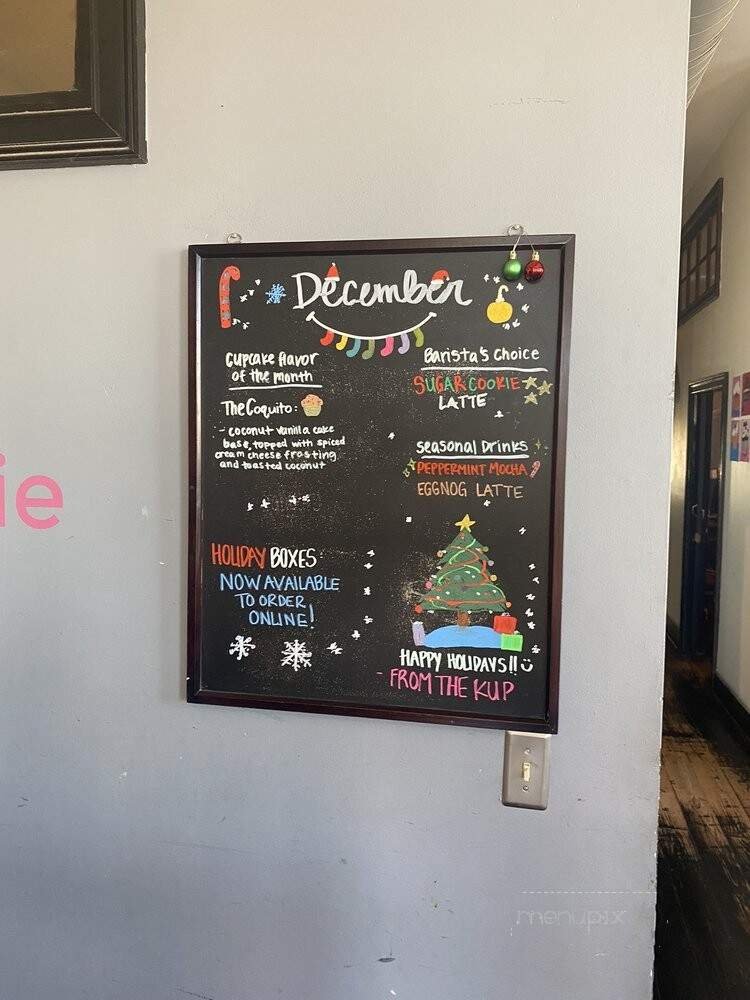 December
Cupcake flavor
of the month
The Coquito:
- coconut vanilla cake
base, topped with spiced
cream cheese frosting
and toasted coconut
HOLIDAY BOXES
NOW AVAILABLE
TO ORDER
ONLINE!
Barista's Choice
SUGAR COOKIE
LATTE
Seasonal Drinks
PEPPERMINT MOCHA
EGGNOG LATTE
HAPPY HOLIDAYS!!
- FROM THE KUP
ie
menupix